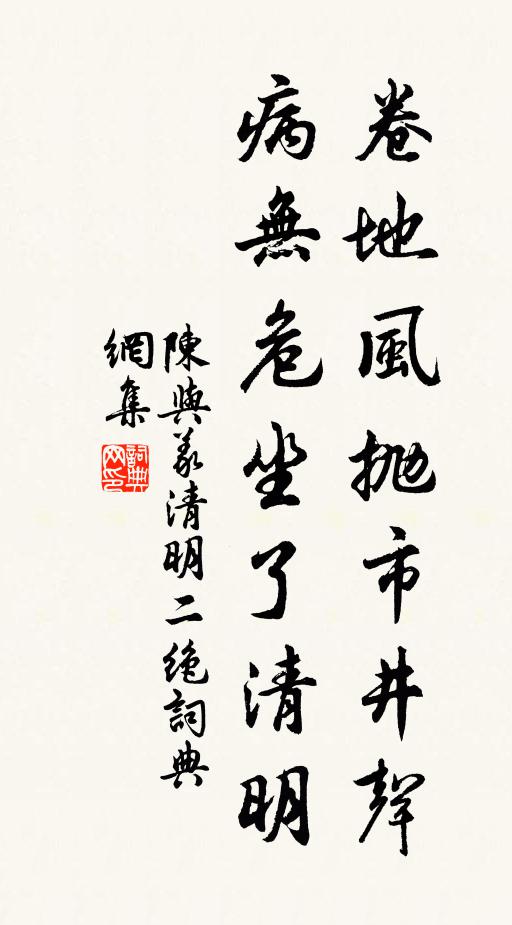 卷地風拋市井聲
病無危坐了清明
陳與義清明二絕詞典
網集
詞典
网印